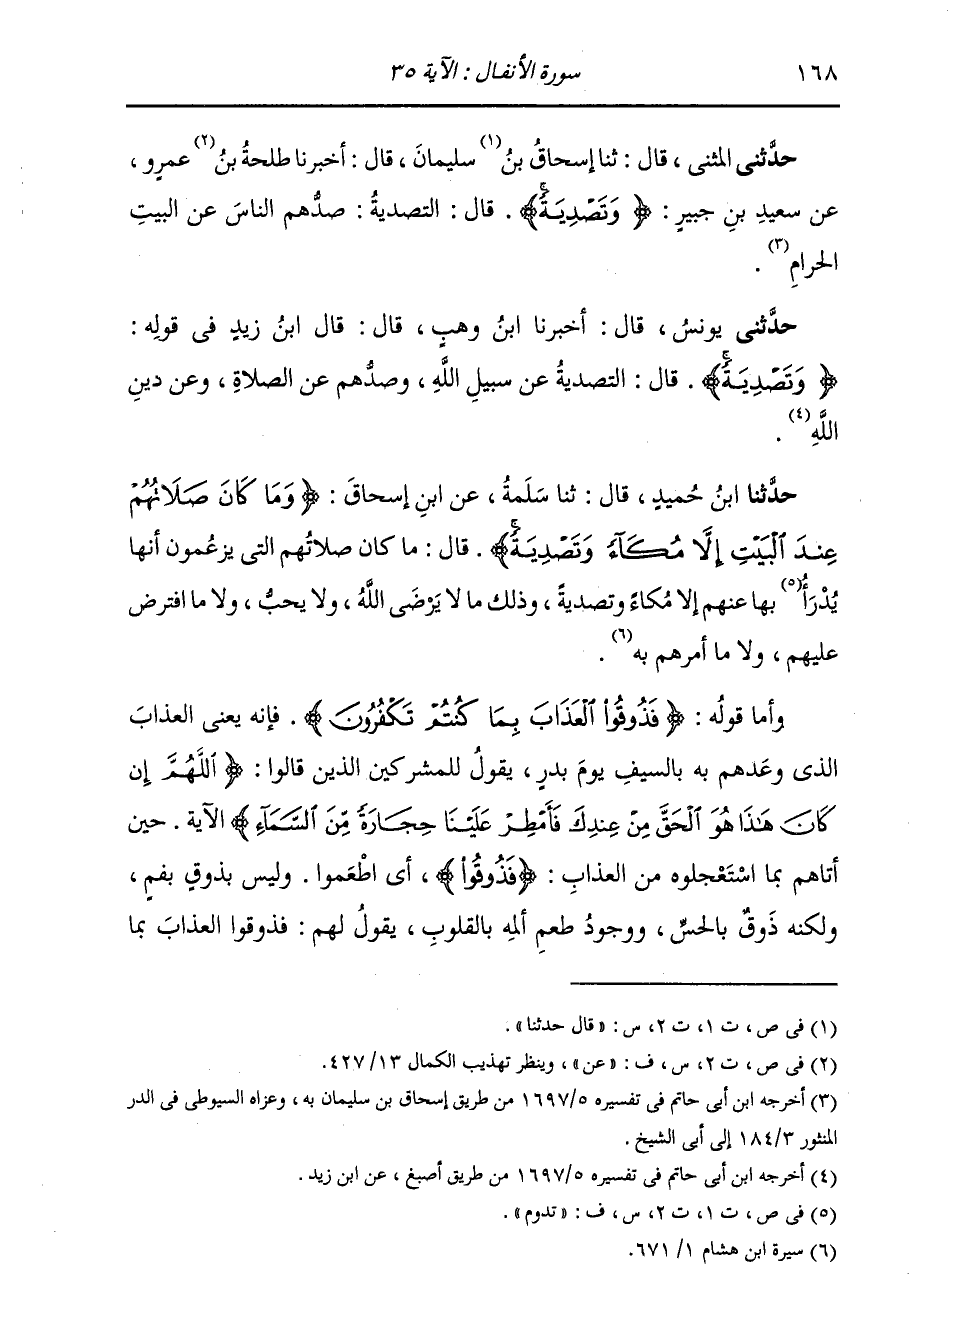 ١٦٨ سورة الأنفال : الآية ٣٥
حدَّثنى المثنى ، قال : ثنا إسحاقُ بنُ (١) سليمانَ ، قال : أخبرنا طلحةُ بنُ (٢) عمرو ،
عن سعيدِ بنِ جبيرٍ : ﴿ وَتَصْدِيَةً ﴾ . قال : التصديةُ : صدُّهم الناسَ عن البيتِ
الحرامِ (٣) .
حدَّثنى يونسُ ، قال : أخبرنا ابنُ وهبٍ ، قال : قال ابنُ زيدٍ فى قولِه :
﴿ وَتَصْدِيَةً ﴾ . قال : التصديةُ عن سبيلِ اللَّهِ ، وصدُّهم عن الصلاةِ ، وعن دينِ
اللَّهِ (٤) .
حدَّثنا ابنُ حُميدٍ ، قال : ثنا سَلَمةُ ، عن ابنِ إسحاقَ : ﴿ وَمَا كَانَ صَلَاتُهُمْ
عِندَ ٱلْبَيْتِ إِلَّا مُكَآءً وَتَصْدِيَةً ﴾ . قال : ما كان صلاتُهم التى يزعُمون أنها
يُدْرَأُ (٥) بها عنهم إلا مُكاءً وتصديةً ، وذلك ما لا يَرْضَى اللَّهُ ، ولا يحبُّ ، ولا ما افترض
عليهم ، ولا ما أمرهم به (٦) .
وأما قولُه : ﴿ فَذُوقُوا۟ ٱلْعَذَابَ بِمَا كُنتُمْ تَكْفُرُونَ ﴾ . فإنه يعنى العذابَ
الذى وعَدهم به بالسيفِ يومَ بدرٍ ، يقولُ للمشركين الذين قالوا : ﴿ ٱللَّهُمَّ إِن
كَانَ هَٰذَا هُوَ ٱلْحَقَّ مِنْ عِندِكَ فَأَمْطِرْ عَلَيْنَا حِجَارَةً مِّنَ ٱلسَّمَآءِ ﴾ الآية . حين
أتاهم بما اسْتَعْجلوه من العذابِ : ﴿ فَذُوقُوا۟ ﴾ ، أى اطْعَموا . وليس بذوقٍ بفمٍ ،
ولكنه ذَوقٌ بالحسِّ ، ووجودُ طعمِ ألمِه بالقلوبِ ، يقولُ لهم : فذوقوا العذابَ بما
(١) فى ص ، ت ١ ، ت ٢ ، س : « قال حدثنا » .
(٢) فى ص ، ت ٢ ، س ، ف : « عن » ، وينظر تهذيب الكمال ١٣/ ٤٢٧.
(٣) أخرجه ابن أبى حاتم فى تفسيره ١٦٩٧/٥ من طريق إسحاق بن سليمان به ، وعزاه السيوطى فى الدر
المنثور ١٨٤/٣ إلى أبى الشيخ .
(٤) أخرجه ابن أبى حاتم فى تفسيره ١٦٩٧/٥ من طريق أصبغ ، عن ابن زيد .
(٥) فى ص ، ت ١ ، ت ٢ ، س ، ف : « تدوم » .
(٦) سيرة ابن هشام ١/ ٦٧١.